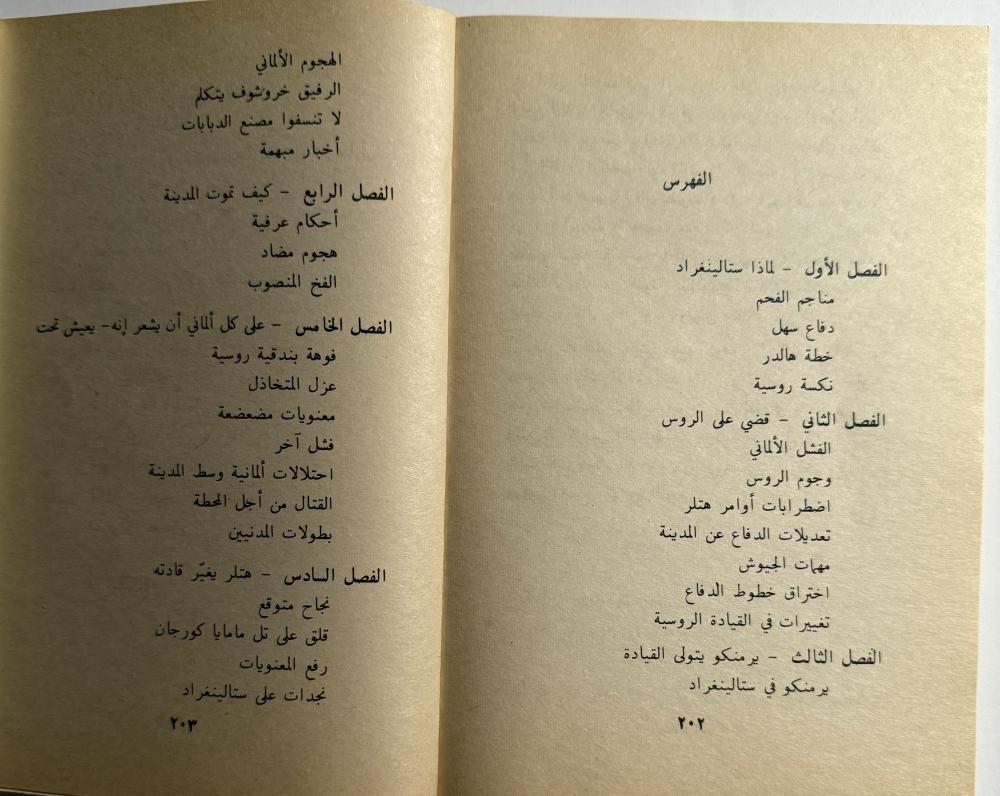 الفهرس
الفصل الأول - لماذا ستالينغراد
مناجم الفحم
دفاع سهل
خطة هالدر
نكسة روسية
الفصل الثاني - قضي على الروس
الفشل الألماني
وجوم الروس
اضطرابات أوامر هتلر
تعديلات الدفاع عن المدينة
مهمات الجيوش
اختراق خطوط الدفاع
تغييرات في القيادة الروسية
الفصل الثالث - يرمنكو يتولى القيادة
يرمنكو في ستالينغراد
٢٠٢
الهجوم الألماني
الرفيق خروشوف يتكلم
لا تنسفوا مصنع الدبابات
أخبار مبهمة
الفصل الرابع - كيف تموت المدينة
أحكام عرفية
هجوم مضاد
الفخ المنصوب
الفصل الخامس - على كل ألماني أن يشعر إنه- يعيش تحت
فوهة بندقية روسية
عزل المتخاذل
معنويات مضعضعة
فشل آخر
احتلالات ألمانية وسط المدينة
القتال من أجل المحطة
بطولات المدنيين
الفصل السادس - هتلر يغيّر قادته
نجاح متوقع
قلق على تل مامايا كورجان
رفع المعنويات
نجدات على ستالينغراد
٢٠٣